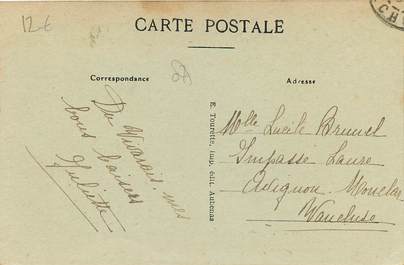 12 €
CARTE POSTALE
CH
Correspondance
Adresse
Du Vivarais mes
bons baisers
Juliette
E. Tourette, imp. édit. Aubenas
Melle Lucile Brunel
Impasse Laure
Avignon Monclar
Vaucluse